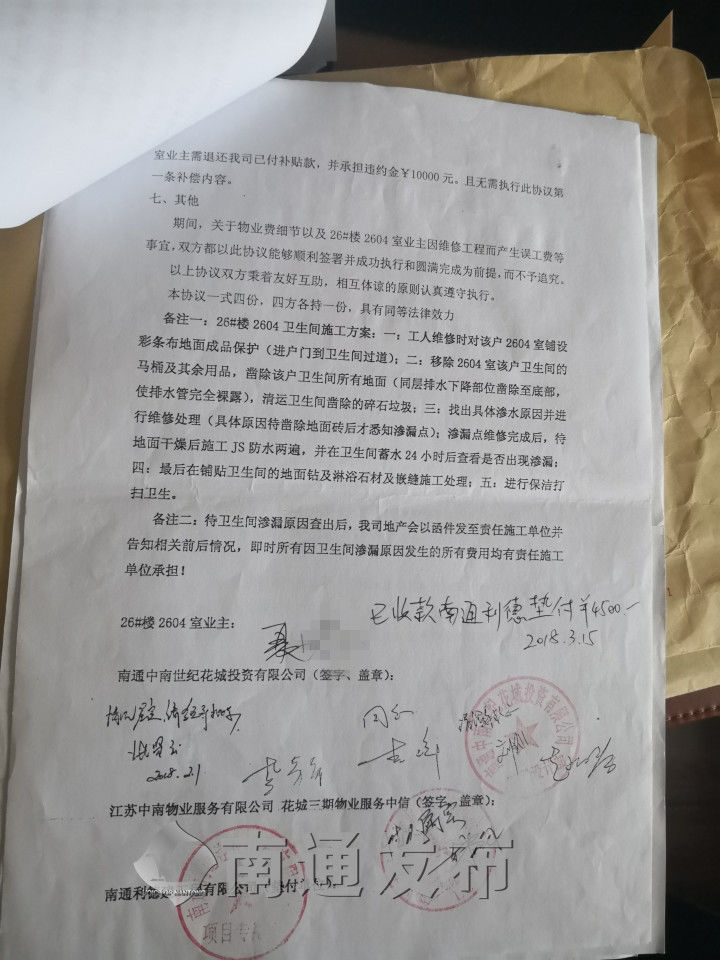 室业主需退还我司已付补贴款，并承担违约金￥10000 元。且无需执行此协议第
一条补偿内容。
七、其他
期间，关于物业费细节以及 26#楼 2604 室业主因维修工程而产生误工费等
事宜，双方都以此协议能够顺利签署并成功执行和圆满完成为前提，而不予追究。
以上协议双方秉着友好互助，相互体谅的原则认真遵守执行。
本协议一式四份，四方各持一份，具有同等法律效力
备注一：26#楼 2604 卫生间施工方案：一：工人维修时对该户 2604 室铺设
彩条布地面成品保护（进户门到卫生间过道）；二：移除 2604 室该户卫生间的
马桶及其余用品，凿除该户卫生间所有地面（同层排水下降部位凿除至底部，
使排水管完全裸露），清运卫生间凿除的碎石垃圾；三：找出具体渗水原因并进
行维修处理（具体原因待凿除地面砖后才悉知渗漏点）；渗漏点维修完成后，待
地面干燥后施工 JS 防水两遍，并在卫生间蓄水 24 小时后查看是否出现渗漏；
四：最后在铺贴卫生间的地面钻及淋浴石材及嵌缝施工处理；五：进行保洁打
扫卫生。
备注二：待卫生间渗漏原因查出后，我司地产会以函件发至责任施工单位并
告知相关前后情况，即时所有因卫生间渗漏原因发生的所有费用均有责任施工
单位承担！
已收款南通利德垫付￥4500一
2018.3.15
26#楼 2604 室业主：
南通中南世纪花城投资有限公司（签字、盖章）：
同意
2018.2.1
花城投资有限公司
江苏中南物业服务有限公司 花城三期物业服务中信（签字、盖章）：
南通利德
有限公
付
项目专
南通发布